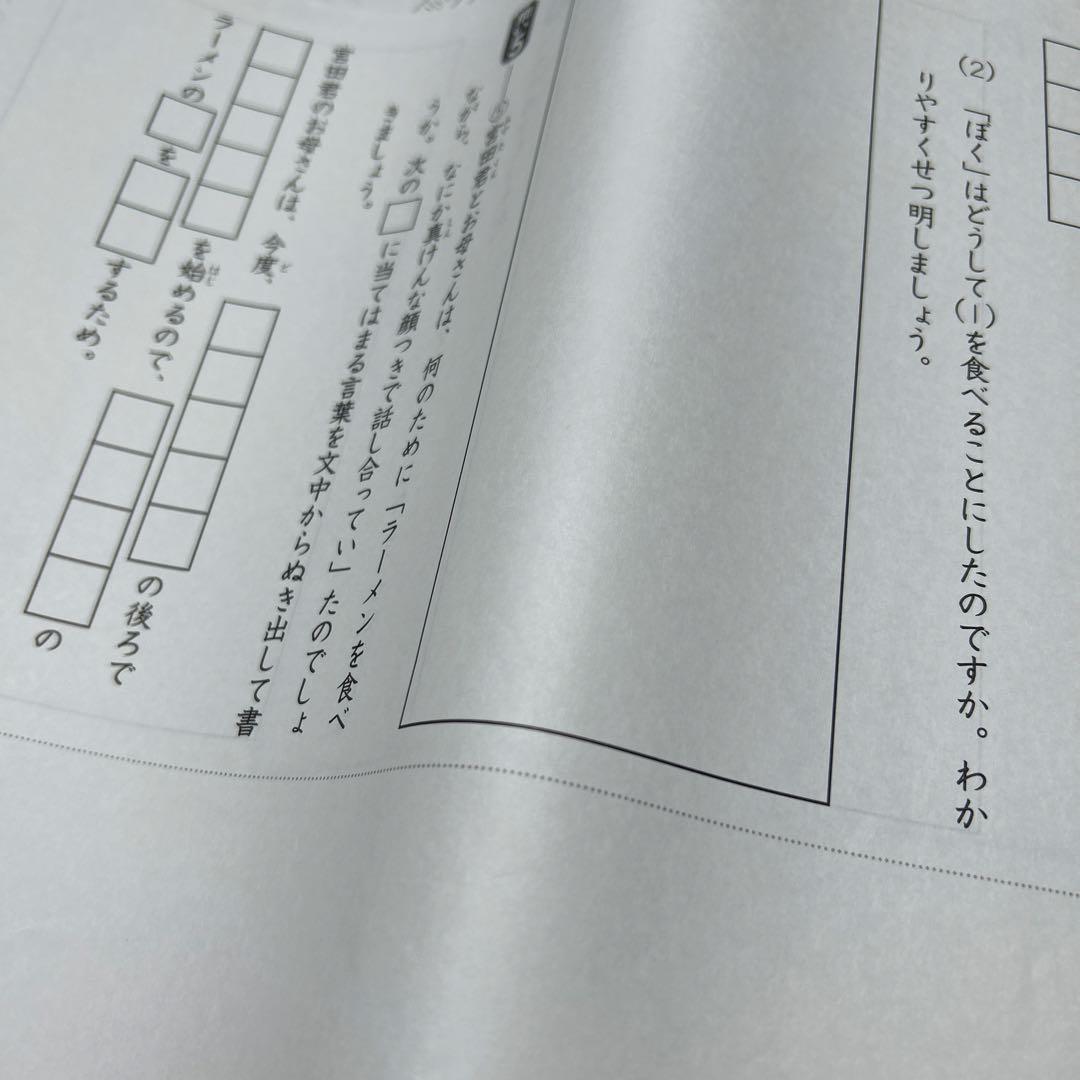 (2) 「ぼく」はどうして(1)を食べることにしたのですか。わか
りやすくせつ明しましょう。
宮田君とお母さんは、何のために「ラーメンを食べ
ながら、なにか真けんな顔つきで話し合ってい」たのでしょ
うか。次の□に当てはまる言葉を文中からぬき出して書
きましょう。
宮田君のお母さんは、今度、□□□□□の後ろで
□□□□を始めるので、□□□□の
ラーメンの□を□□するため。